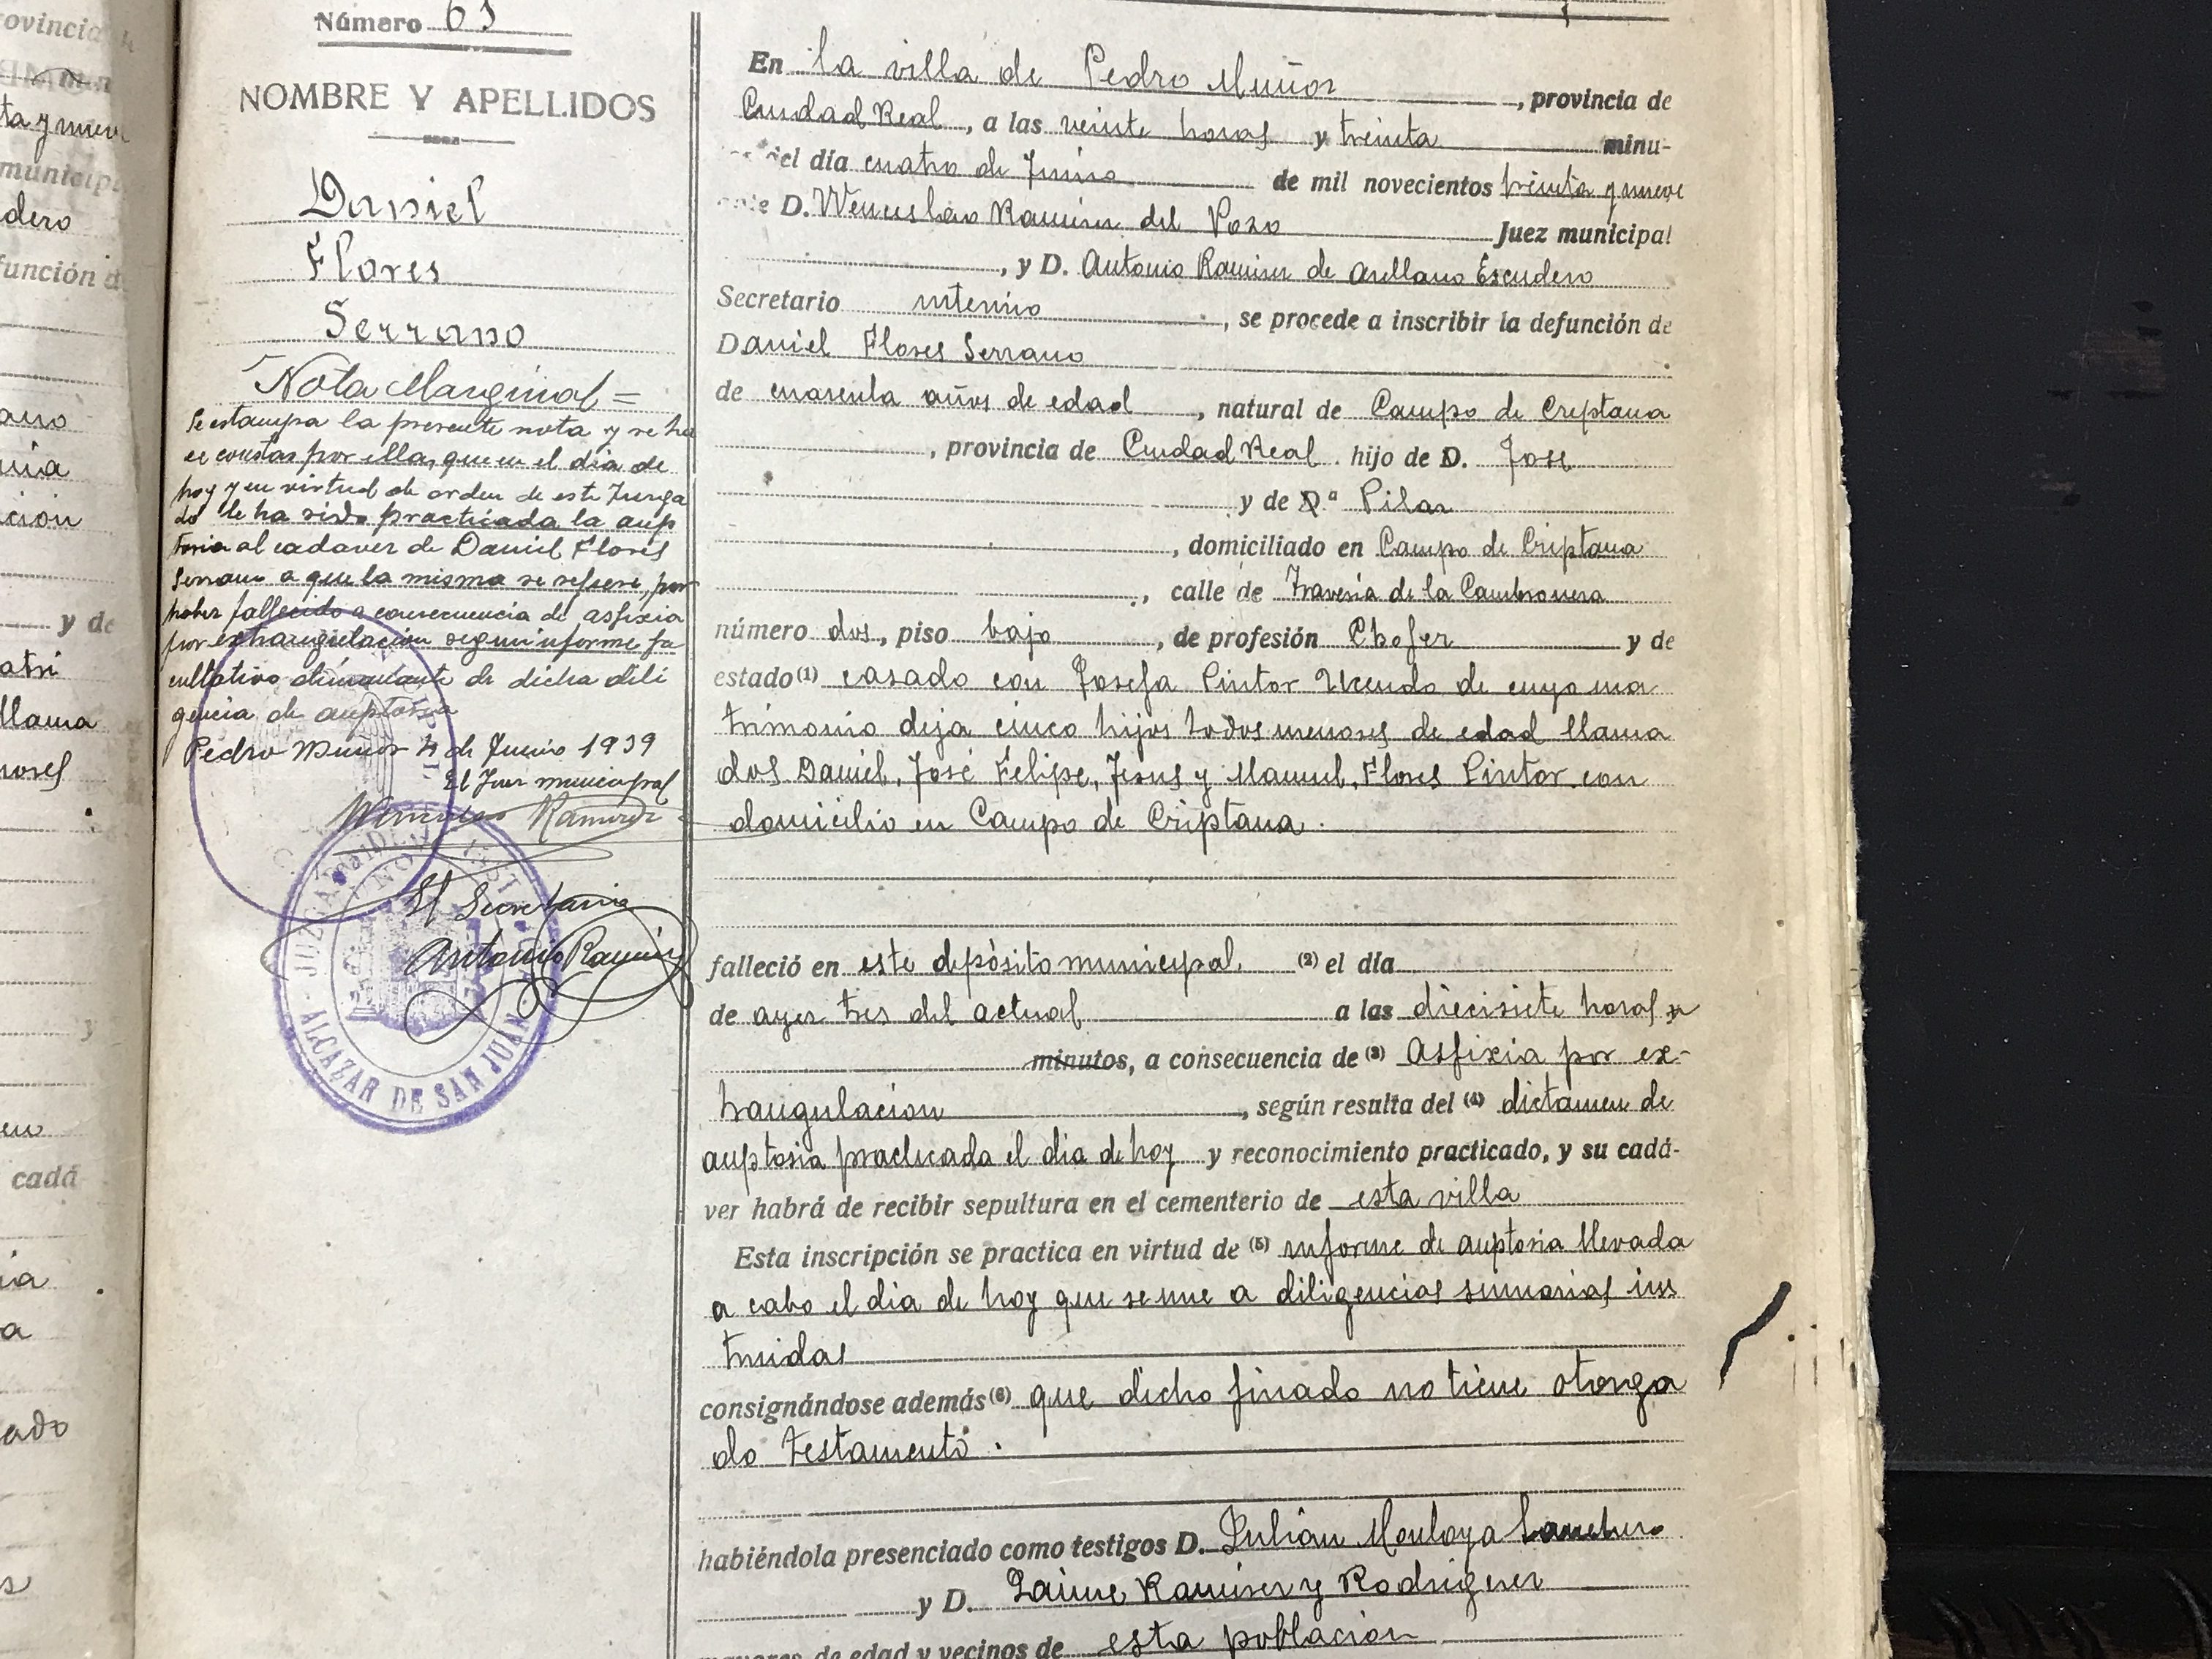 Número 61
NOMBRE Y APELLIDOS
Daniel
Flores
Serrano
Nota Marginal =
Se estampa la presente nota y se ha
ce constar por ella, que en el dia de
hoy y en virtud de orden de este Juzga
do le ha sido practicada la aup
tosia al cadaver de Daniel Flores
Serrano a que la misma se refiere, por
haber fallecido a consecuencia de asfixia
por extrangulación segun informe fa
cultativo dimanante de dicha dili
gencia de auptosia
Pedro Muñoz 4 de Junio 1939
El Juez municipal
Wenceslao Ramirez
El Secretario
Antonio Ramirez
ALCAZAR DE SAN JUAN
En la villa de Pedro Muñoz, provincia de
Ciudad Real, a las veinte horas y treinta minu-
del día cuatro de Junio de mil novecientos treinta y nueve
D. Wenceslao Ramirez del Pozo Juez municipal
, y D. Antonio Ramirez de Arellano Escudero
Secretario interino, se procede a inscribir la defunción de
Daniel Flores Serrano
de cuarenta años de edad, natural de Campo de Criptana
, provincia de Ciudad Real hijo de D. Jose
y de D.ª Pilar
, domiciliado en Campo de Criptana
, calle de Travesia de la Cambronera
número dos, piso bajo, de profesión Chofer y de
estado (1) casado con Josefa Pintor Ucendo de cuyo ma
trimonio deja cinco hijos todos menores de edad llama
dos Daniel, José Felipe, Jesus y Manuel, Flores Pintor con
domicilio en Campo de Criptana.
falleció en este depósito municipal. (2) el día
de ayer tres del actual a las diecisiete horas
minutos, a consecuencia de (3) Asfixia por ex-
trangulacion, según resulta del (4) dictamen de
auptosia practicada el dia de hoy y reconocimiento practicado, y su cadá-
ver habrá de recibir sepultura en el cementerio de esta villa
Esta inscripción se practica en virtud de (5) informe de auptosia llevada
a cabo el dia de hoy que se une a diligencias sumarias ins
truidas
consignándose además (6) que dicho finado no tiene otorga
do testamento.
habiéndola presenciado como testigos D. Julián Montoya
y D. Jaime Ramirez y Rodriguez
mayores de edad y vecinos de esta población